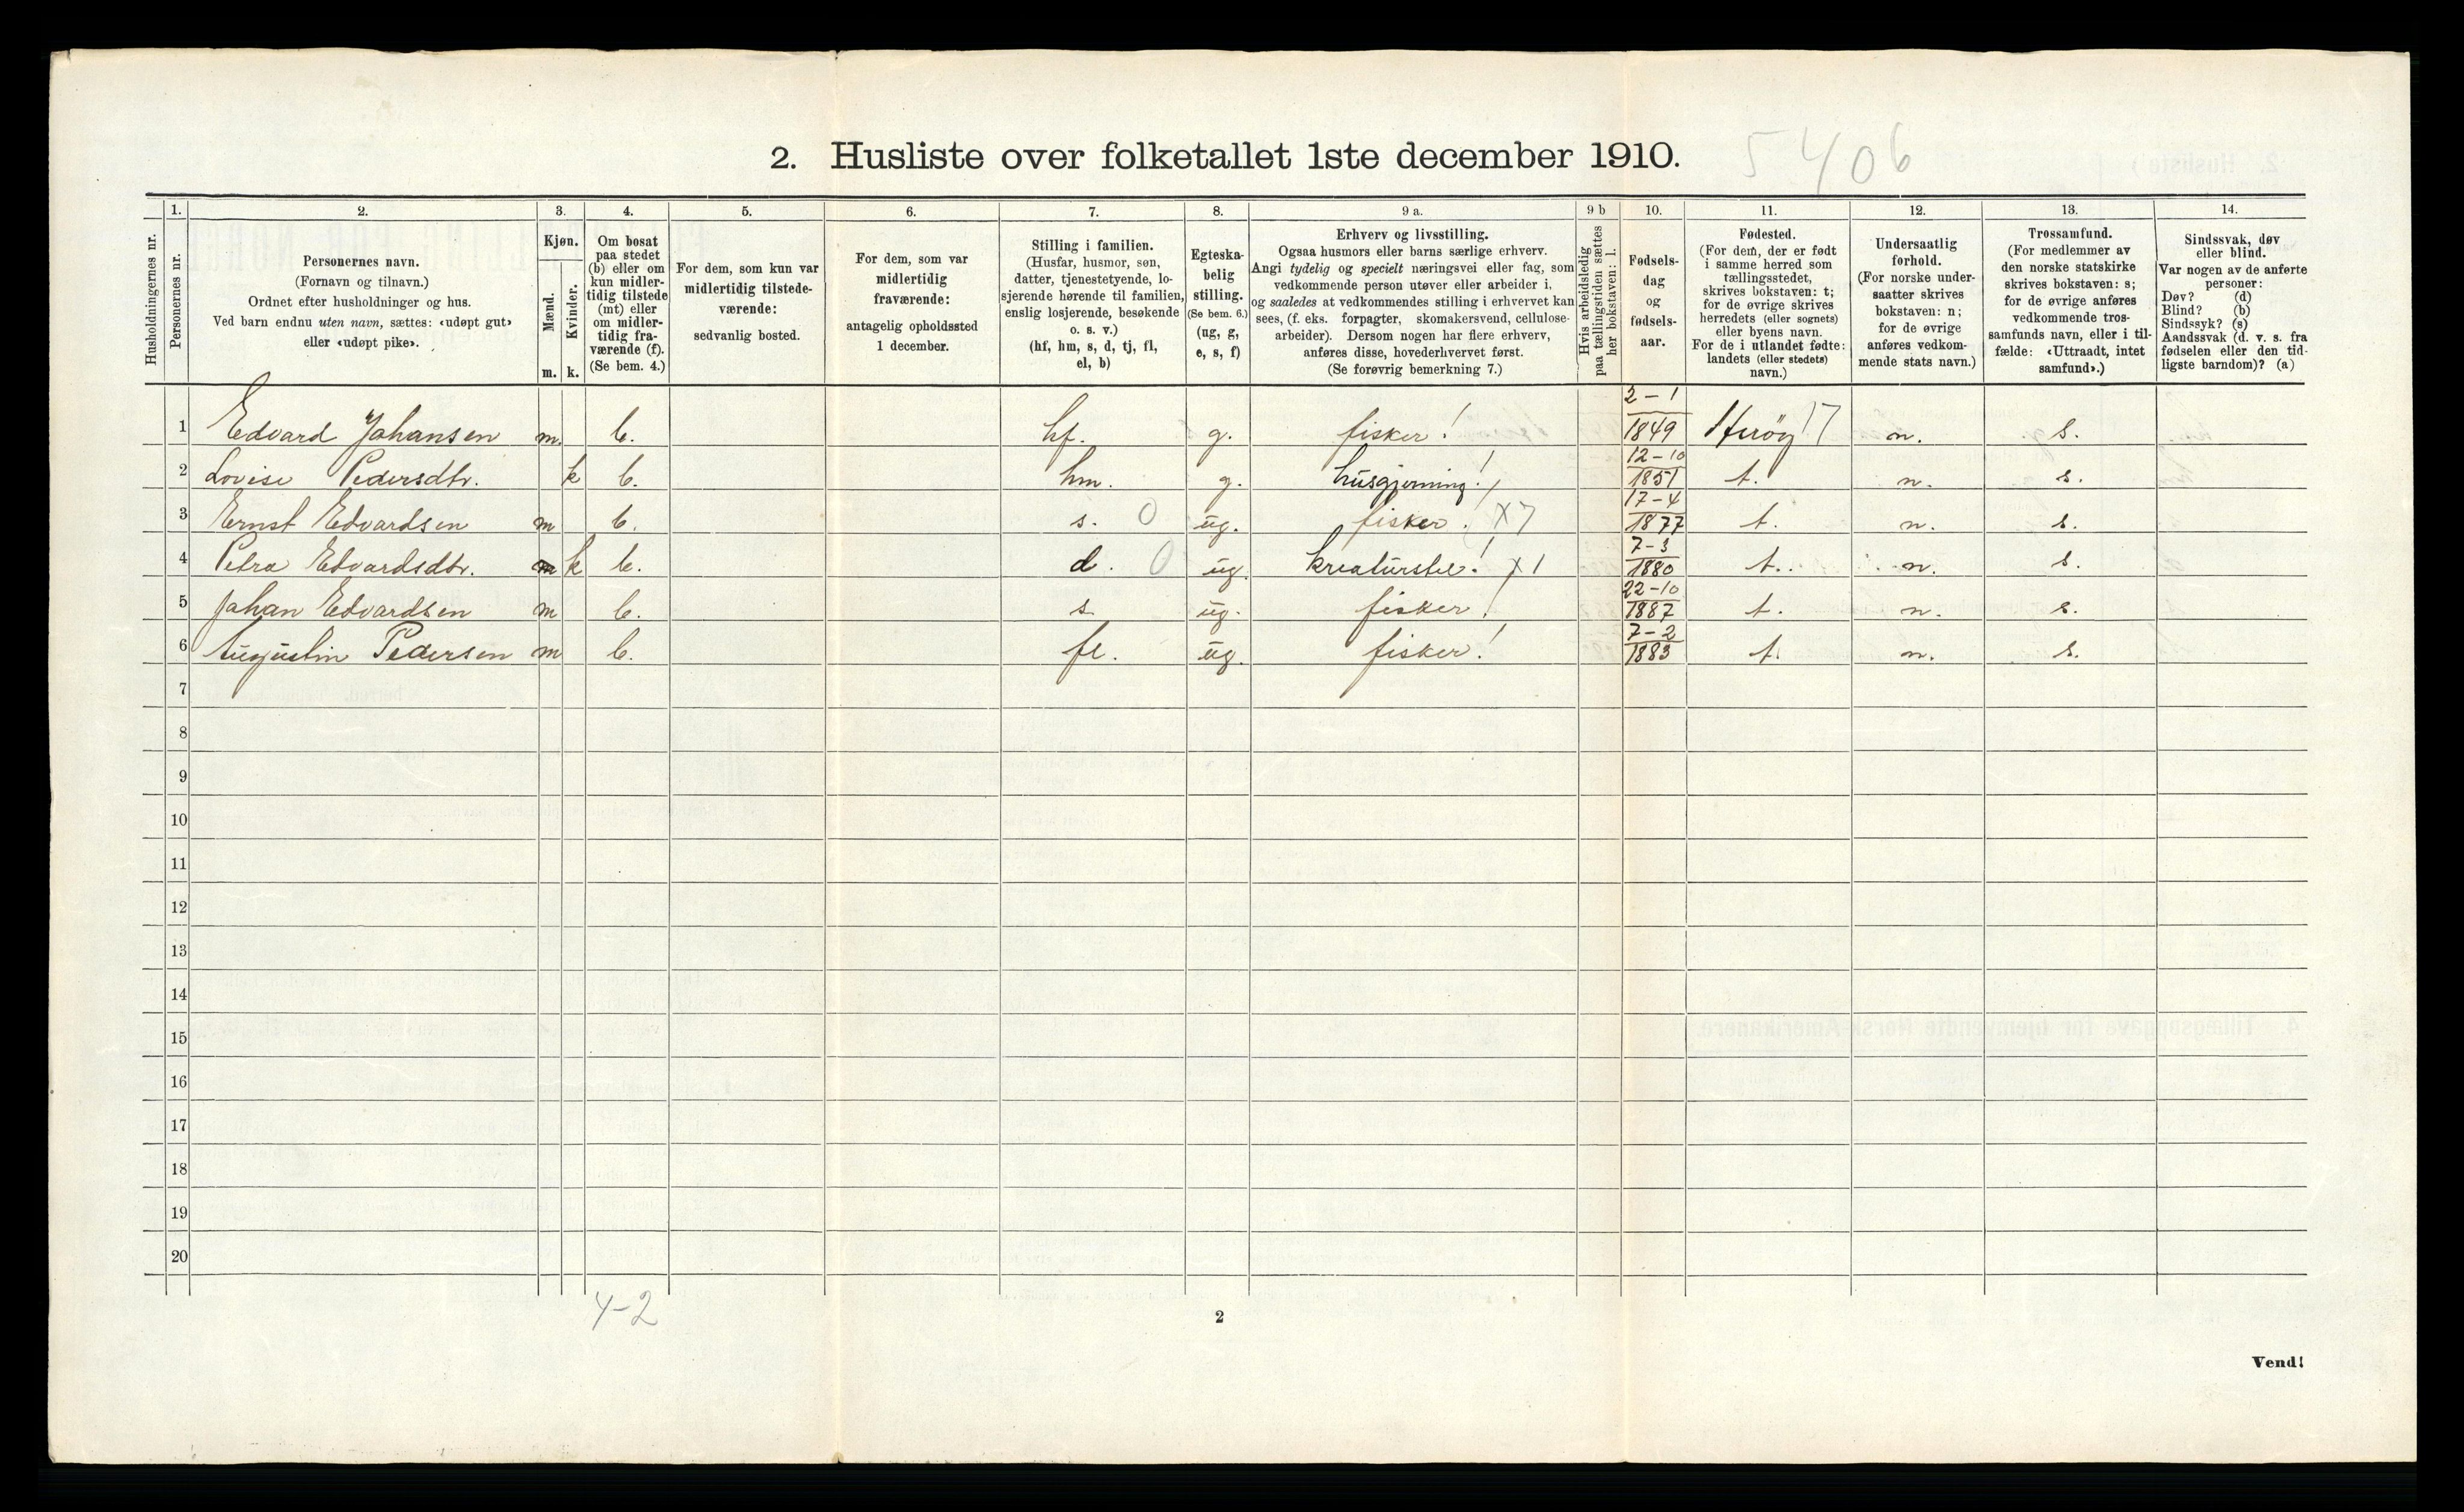 2. Husliste over folketallet 1ste december 1910.
5406
1. 2. 3. 4. 5. 6. 7. 8. 9 a. 9 b 10. 11. 12. 13. 14.
Husholdningernes nr.
Personernes nr.
Personernes navn.
(Fornavn og tilnavn.)
Ordnet efter husholdninger og hus.
Ved barn endnu uten navn, sættes: «udøpt gut»
eller «udøpt pike».
Kjøn.
Mænd.
Kvinder.
m. k.
Om bosat
paa stedet
(b) eller om
kun midler-
tidig tilstede
(mt) eller
om midler-
tidig fra-
værende (f).
(Se bem. 4.)
For dem, som kun var
midlertidig tilstede-
værende:
sedvanlig bosted.
For dem, som var
midlertidig
fraværende:
antagelig opholdssted
1 december.
Stilling i familien.
(Husfar, husmor, søn,
datter, tjenestetyende, lo-
sjerende hørende til familien,
enslig losjerende, besøkende
o. s. v.)
(hf, hm, s, d, tj, fl,
el, b)
Egteska-
belig
stilling.
(Se bem. 6.)
(ug, g,
e, s, f)
Erhverv og livsstilling.
Ogsaa husmors eller barns særlige erhverv.
Angi tydelig og specielt næringsvei eller fag, som
vedkommende person utøver eller arbeider i,
og saaledes at vedkommendes stilling i erhvervet kan
sees, (f. eks. forpagter, skomakersvend, cellulose-
arbeider). Dersom nogen har flere erhverv,
anføres disse, hovederhvervet først.
(Se forøvrig bemerkning 7.)
Hvis arbeidsledig
paa tællingstiden sættes
her bokstaven: l.
Fødsels-
dag
og
fødsels-
aar.
Fødested.
(For dem, der er født
i samme herred som
tællingsstedet,
skrives bokstaven: t;
for de øvrige skrives
herredets (eller sognets)
eller byens navn.
For de i utlandet fødte:
landets (eller stedets)
navn.)
Undersaatlig
forhold.
(For norske under-
saatter skrives
bokstaven: n;
for de øvrige
anføres vedkom-
mende stats navn.)
Trossamfund.
(For medlemmer av
den norske statskirke
skrives bokstaven: s;
for de øvrige anføres
vedkommende tros-
samfunds navn, eller i til-
fælde: «Uttraadt, intet
samfund».)
Sindssvak, døv
eller blind.
Var nogen av de anførte
personer:
Døv? (d)
Blind? (b)
Sindssyk? (s)
Aandssvak (d. v. s. fra
fødselen eller den tid-
ligste barndom)? (a)
1 Edvard Johansen m. b. hf. g. fisker! 2-1 1849 Herøy 17 n. s.
2 Lovise Pedersdtr. k b. hm. g. husgjerning! 12-10 1851 t. n. s.
3 Ernst Edvardsen m b. s. 0 ug. fisker! X7 17-4 1877 t. n. s.
4 Petra Edvardsdtr. m k b. d. 0 ug. kreaturstel! X1 7-3 1880 t. n. s.
5 Johan Edvardsen m b. s. ug. fisker! 22-10 1887 t. n. s.
6 Augustin Pedersen m b. fl. ug. fisker! 7-2 1883 t. n. s.
7
8
9
10
11
12
13
14
15
16
17
18
19
20
4-2
2
Vend!